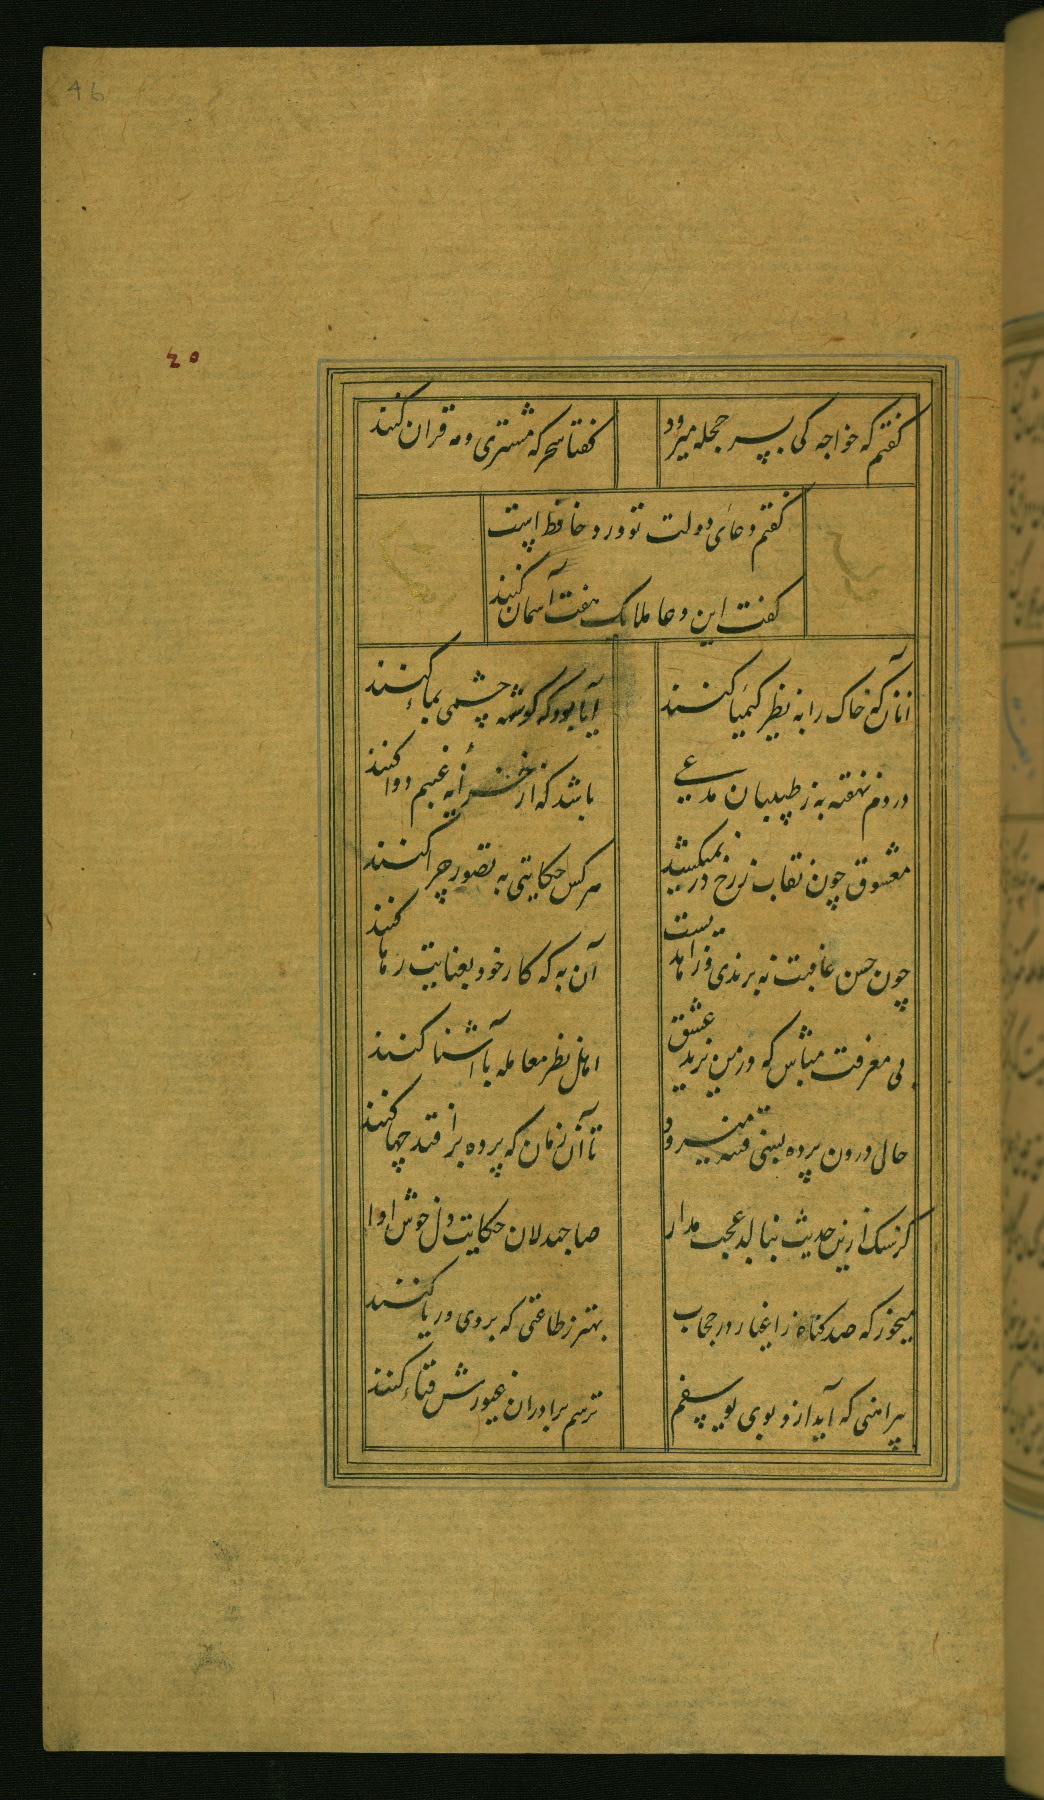 46
٤٥
گفتم که خواجه کی بسر حجله میرود
گفتا سحر که مشتری و مه قران کنند
گفتم دعای دولت تو ورد حافظ است
گفت این دعا ملایک هفت آسمان کنند
آنان که خاک را به نظر کیمیا کنند
آیا بود که گوشه چشمی بما کنند
دردم نهفته به ز طبیبان مدعی
باشد که از خزانه غیبم دوا کنند
معشوق چون نقاب ز رخ در نمیکشد
هر کس حکایتی به تصور چرا کنند
چون حسن عاقبت نه برندی و زاهدیست
آن به که کار خود بعنایت رها کنند
بی معرفت مباش که در من یزید عشق
اهل نظر معامله با آشنا کنند
حالی درون پرده بسی فتنه میرود
تا آن زمان که پرده برافتد چها کنند
گر سنگ ازین حدیث بنالد عجب مدار
صاحبدلان حکایت دل خوش ادا
میخور که صد گناه ز اغیار در حجاب
بهتر ز طاعتی که بروی و ریا کنند
پیراهنی که آید ازو بوی یوسفم
ترسم برادران غیورش قباء کنند